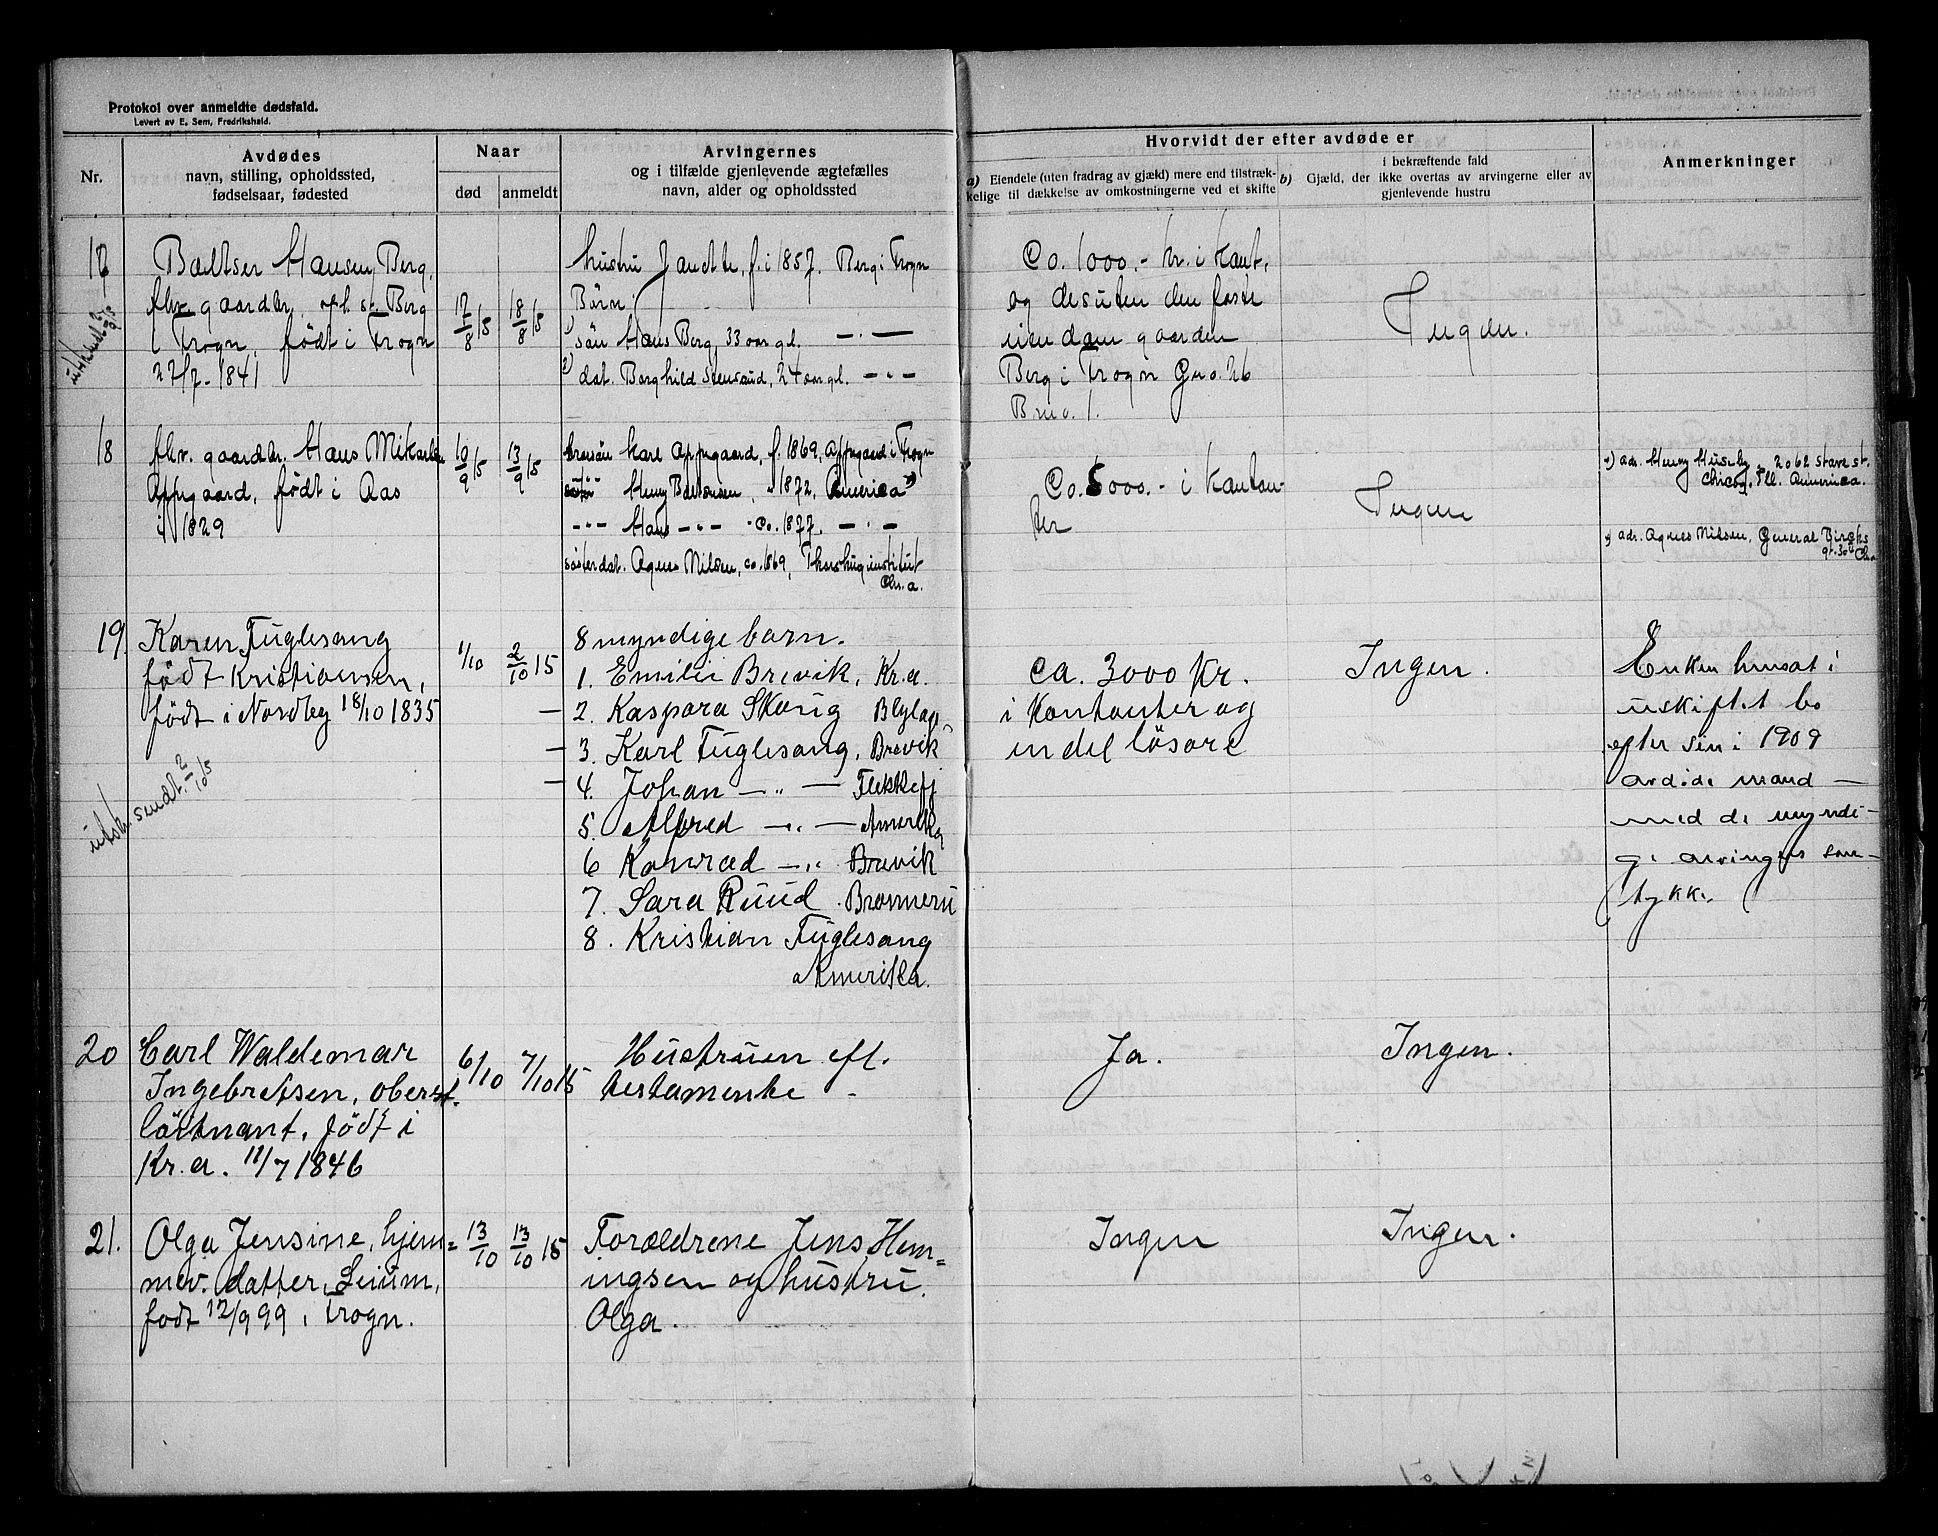 Protokol over anmeldte dødsfald.
Levert av E. Sem, Fredrikshald.
Nr.
Avdødes
navn, stilling, opholdssted,
fødselsaar, fødested
Naar
død
anmeldt
Arvingernes
og i tilfælde gjenlevende ægtefælles
navn, alder og opholdssted
Hvorvidt der efter avdøde er
a) Eiendele (uten fradrag av gjæld) mere end tilstræk-
kelige til dækkelse av omkostningerne ved et skifte
b) Gjæld, der i bekræftende fald
ikke overtas av arvingerne eller av
gjenlevende hustru
Anmerkninger
17
Baltser Hansen Berg,
fhv. gaardbr. st. Berg
i Frogn, født i Frogn
22/7-1841
17/8 15
18/8 15
hustru f. i 1857. Berg i Frogn
Börn:
1) sön Hans Berg, 33 aar gl. — " —
2) dat. Borghild Stensrud, 24 aar gl. — " —
Ca. 1000.- kr. i kont.
og desuten den faste
eiendom gaarden
Berg i Frogn Gno. 26
Bno. 1.
Ingen.
18
fhv. gaardbr. Hans Mikaelsen
Oppegaard, født i Aas
i 1829
10/9 15
13/9 15
brorsön Karl Oppegaard, f. 1869, Oppegaard i Frogn
Henry " 1872, America
— " — Hans — " — Ca. 1877. — " —
søsterdat. Agnes Nilsen, ca. 1869, institut
Chr.a.
Ca. 5000.- i kontan-
ter
Ingen
adr. Henry Huseby, 2062 st.
Chicago, Ill. America.
adr. Agnes Nilsen, General Birchs
gt. 30 Chr.a
19.
Karen Fuglesang
født Kristiansen,
født i Nordby 18/10 1835
utskr. sendt. 2/10 15
1/10
2/10 15
8 myndige barn.
1. Emilie Brevik, Kr.a.
— 2. Kaspara Skaug
— 3. Karl Fuglesang, Brevik
— 4. Johan — " — Flekkefj
5. Alfred — " — Amerika
6 Konrad — " Brevik
7. Sara Ruud.
8. Kristian Fuglesang
Amerika.
ca. 3000 kr.
i kontanter og
en del løsøre
Ingen.
Enken hensat i
uskiftet bo
efter sin i 1909
avdøde mand —
med de myndi-
ge arvingers sam-
tykke.
20
Carl Waldemar
Ingebretsen, oberst-
löitnant, født i
Kr.a. 11/7 1846
6/10
7/10 15
Hustruen eft.
testamente -
Ja.
Ingen.
21.
Olga Jensine, hjem=
mev. datter, Seium,
født 12/9 99 i Frogn.
13/10
13/10 15
Forældrene Jens Hem=
ingsen og hustru
Olga.
Ingen
Ingen.